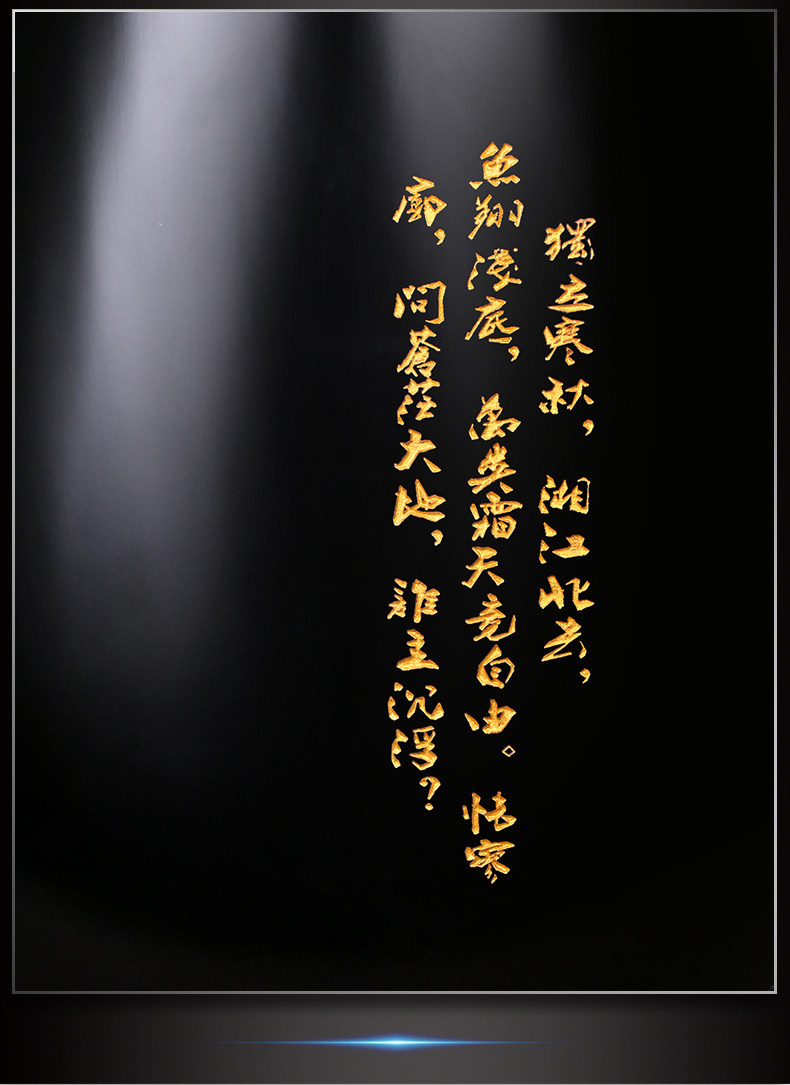 獨立寒秋，湘江北去，
魚翔淺底，萬类霜天竞自由。怅寥
廓，問蒼茫大地，誰主沉浮？